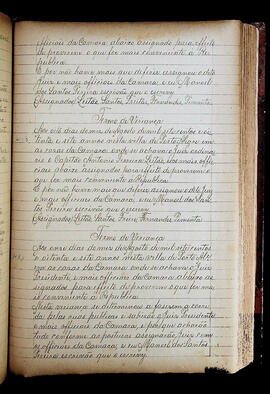 officiaes da Camara abaixo assignado para effeito
de proverem o que for mais conveniente á Re
publica.
E por não haver mais que diferir assignou o dito
Juiz e mais officiaes da Camara, e eu Manoel
dos Santos Pereira escrivão que o escrevy
(Assignados) Leitão, Santos, Freitas, Fernandes Pimenta
Termo de Veriança
Aos oito dias do mez de Agosto de mil sete centos e oi
tenta e sete annos nesta villa de Porto Alegre em
as casas da Camara onde se achava o Juiz ordena
rio o Capitão Antonio Ferreira Leitão e os mais offi
ciaes abaixo assignados para effeito de proverem o que
for mais conveniente á Republica.
E por não haver mais que diferir assignou o dito Juiz
e mais officiaes da Camara, e eu Manoel dos San
tos Pereira escrivão que o escrevy
(Assignados) Leitão, Santos, Freitas, Fernandes Pimenta
Termo de Veriança
Aos onze dias do mez de Agosto de mil sete centos
e oitenta e sete annos nesta villa de Porto Ale
as casas da Camara onde se achava o Juiz
Presidente e mais officiaes da Camara abaixo as
signados para effeito de proverem o que for ma
is conveniente á Republica.
Nesta veriança se determinou a fazerem a corre
ição pelas ruas publicas e sahirão o Juiz Presidente
e mais officiaes da Camara, e por que acharão
tudo conforme as posturas assignarão Juiz com
os officiaes da Camara, e eu Manoel dos Santos
Pereira escrivão que o escrevy